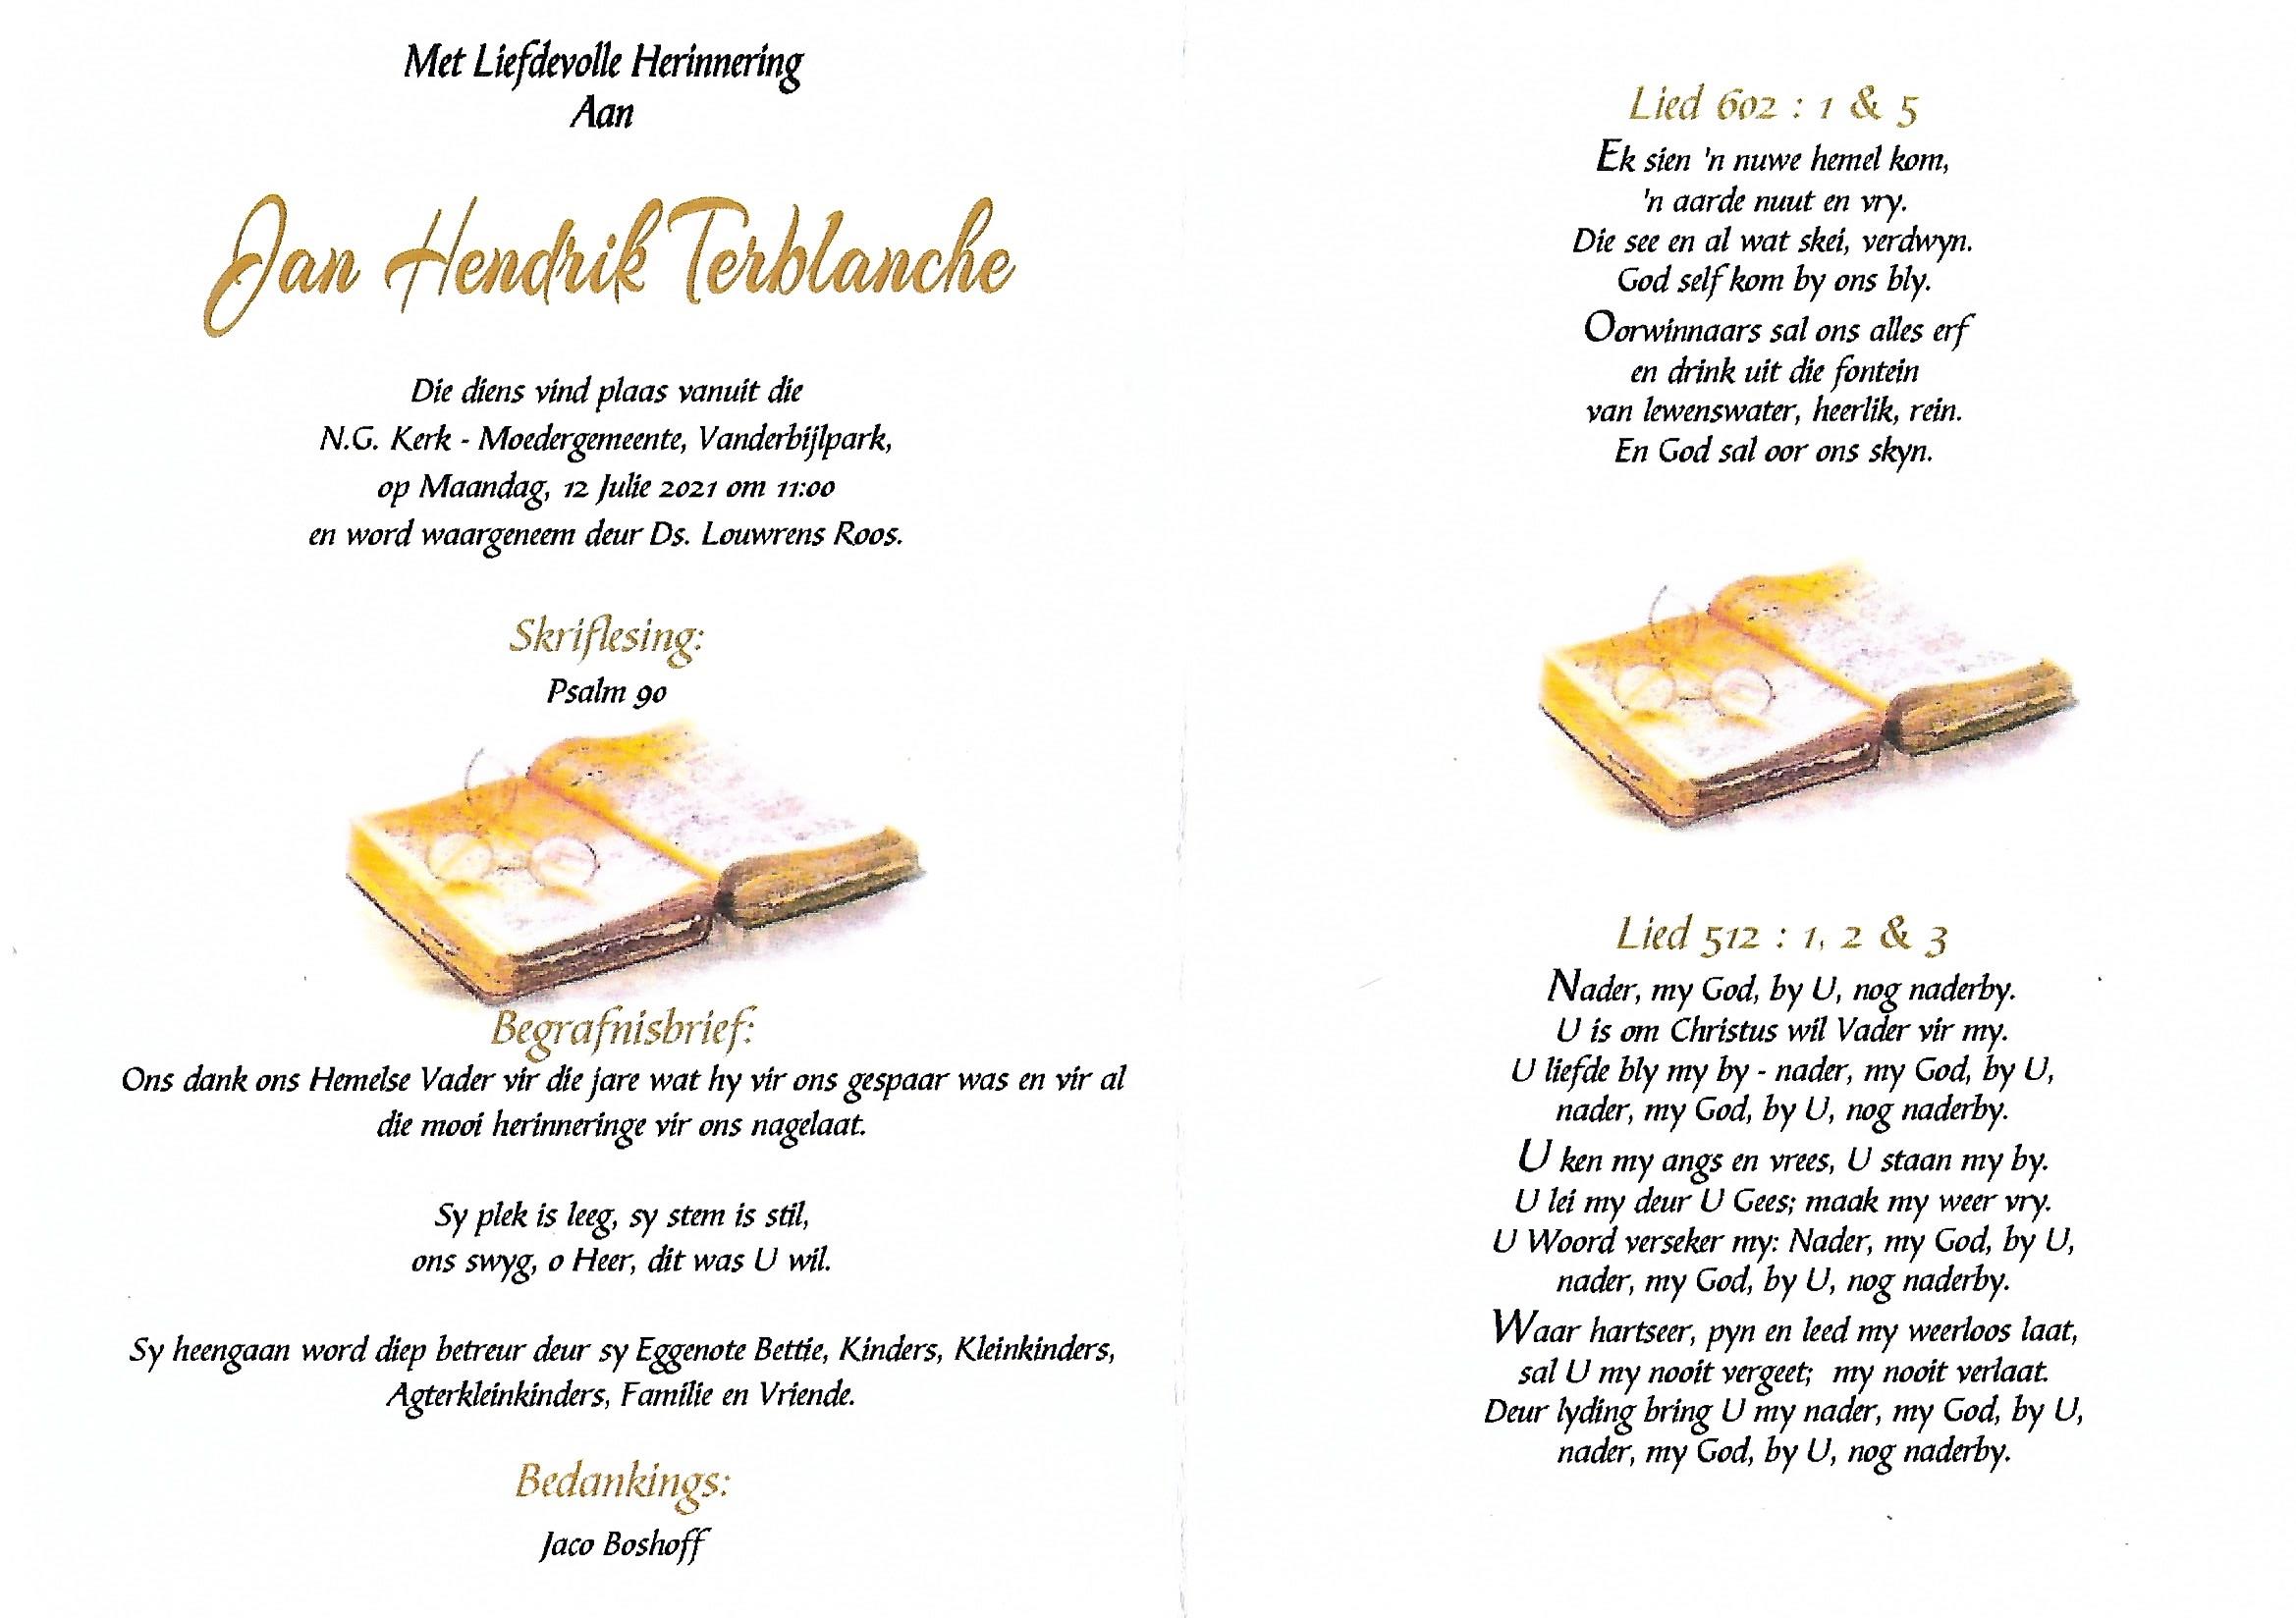 Met Liefdevolle Herinnering
Aan
Jan Hendrik Terblanche
Die diens vind plaas vanuit die
N.G. Kerk - Moedergemeente, Vanderbijlpark,
op Maandag, 12 Julie 2021 om 11:00
en word waargeneem deur Ds. Louwrens Roos.
Skriflesing:
Psalm 90
Begrafnisbrief:
Ons dank ons Hemelse Vader vir die jare wat hy vir ons gespaar was en vir al
die mooi herinneringe vir ons nagelaat.
Sy plek is leeg, sy stem is stil,
ons swyg, o Heer, dit was U wil.
Sy heengaan word diep betreur deur sy Eggenote Bettie, Kinders, Kleinkinders,
Agterkleinkinders, Familie en Vriende.
Bedankings:
Jaco Boshoff
Lied 602 : 1 & 5
Ek sien 'n nuwe hemel kom,
'n aarde nuut en vry.
Die see en al wat skei, verdwyn.
God self kom by ons bly.
Oorwinnaars sal ons alles erf
en drink uit die fontein
van lewenswater, heerlik, rein.
En God sal oor ons skyn.
Lied 512 : 1, 2 & 3
Nader, my God, by U, nog naderby.
U is om Christus wil Vader vir my.
U liefde bly my by - nader, my God, by U,
nader, my God, by U, nog naderby.
U ken my angs en vrees, U staan my by.
U lei my deur U Gees; maak my weer vry.
U Woord verseker my: Nader, my God, by U,
nader, my God, by U, nog naderby.
Waar hartseer, pyn en leed my weerloos laat,
sal U my nooit vergeet; my nooit verlaat.
Deur lyding bring U my nader, my God, by U,
nader, my God, by U, nog naderby.